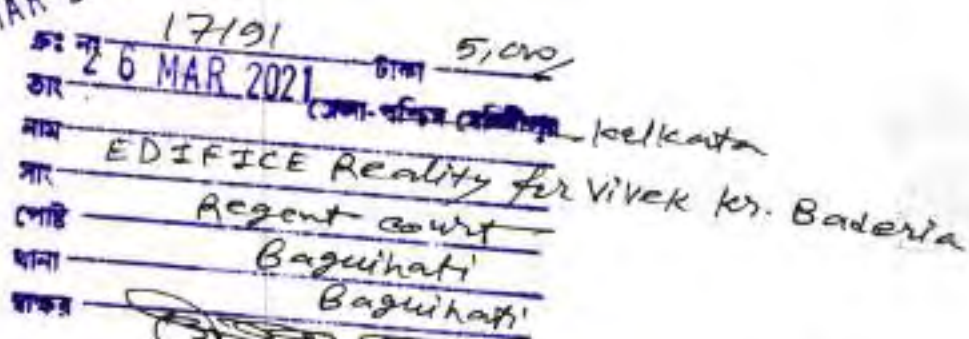 ক্রঃ নং 17191 টাকা 5,000/
তাং 26 MAR 2021 জেলা-পশ্চিম মেদিনীপুর kolkata
নাম EDIFICE Reality for Vivek kr. Baderia
সাং Regent court
পোষ্ট Baguihati
থানা Baguihati
স্বাক্ষর